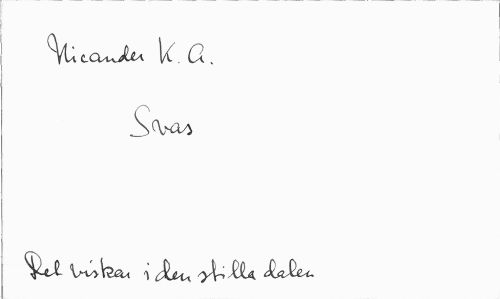 Nicander K. A.
Svas
Det viskar i den stilla dalen